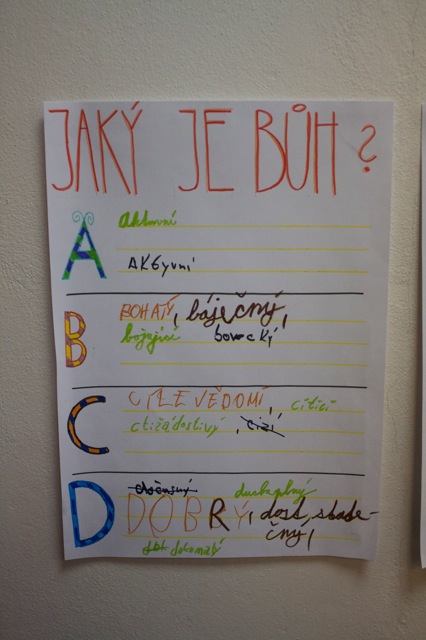 JAKÝ JE BŮH?
A
Aktivní
AKtyvní
B
BOHATÝ, báječný,
bojující bov cký
C
CÍLEVĚDOMÍ, cítící
ctižádostivý, cizí
D
duchaplný
DOBRÝ, dost, statečný,
dokonalý